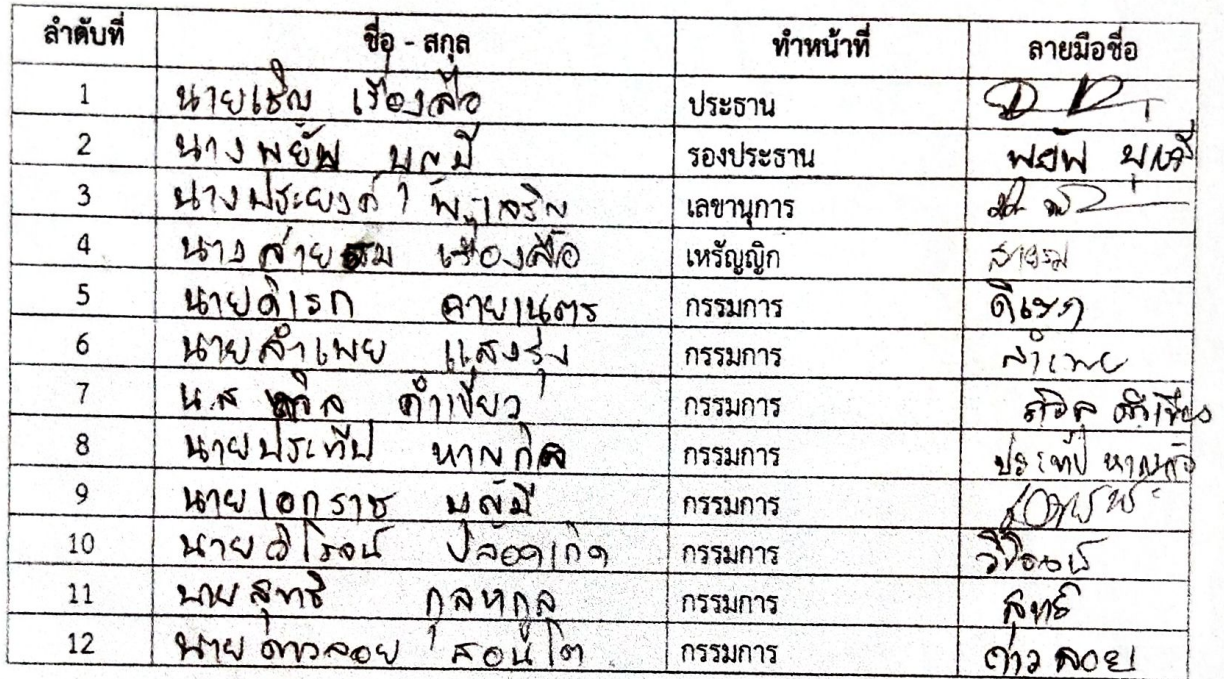 ลำดับที่ ชื่อ - สกุล ทำหน้าที่ ลายมือชื่อ
1 นายเชิญ เรืองเสือ ประธาน
2 นางพยัพ บุญมี รองประธาน พยัพ บุญมี
3 นางประยงค์ เลขานุการ
4 นางสายรม เรืองเสือ เหรัญญิก สายรม
5 นายดิเรก ฉายเนตร กรรมการ ดิเรก
6 นายสำเพย แสงรุ่ง กรรมการ สำเพย
7 น.ส ถวิล คำเขียว กรรมการ ถวิล คำเขียว
8 นายประทีป หาญกิจ กรรมการ ประทีป หาญกิจ
9 นายเอกราช บุญมี กรรมการ
10 นายวิโรจน์ ปลอดเกิด กรรมการ วิโรจน์
11 นายสุทธิ กุลหกูล กรรมการ สุทธิ
12 นายดาวลอย สอนโต กรรมการ ดาวลอย